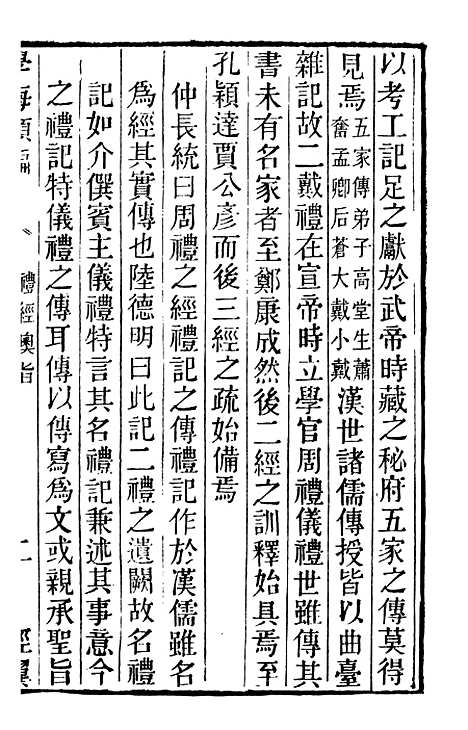 以考工記足之獻於武帝時藏之秘府五家之傳莫得
見焉五家傳弟子高堂生蕭奮孟卿后蒼大戴小戴漢世諸儒傳授皆以曲臺
雜記故二戴禮在宣帝時立學官周禮儀禮世雖傳其
書未有名家者至鄭康成然後二經之訓釋始具焉至
孔穎達賈公彥而後三經之疏始備焉
仲長統曰周禮之經禮記之傳禮記作於漢儒雖名
為經其實傳也陸德明曰此記二禮之遺闕故名禮
記如介僎賓主儀禮特言其名禮記兼述其事意今
之禮記特儀禮之傳耳傳以傳寫為文或親承聖旨
禮經奧旨
二